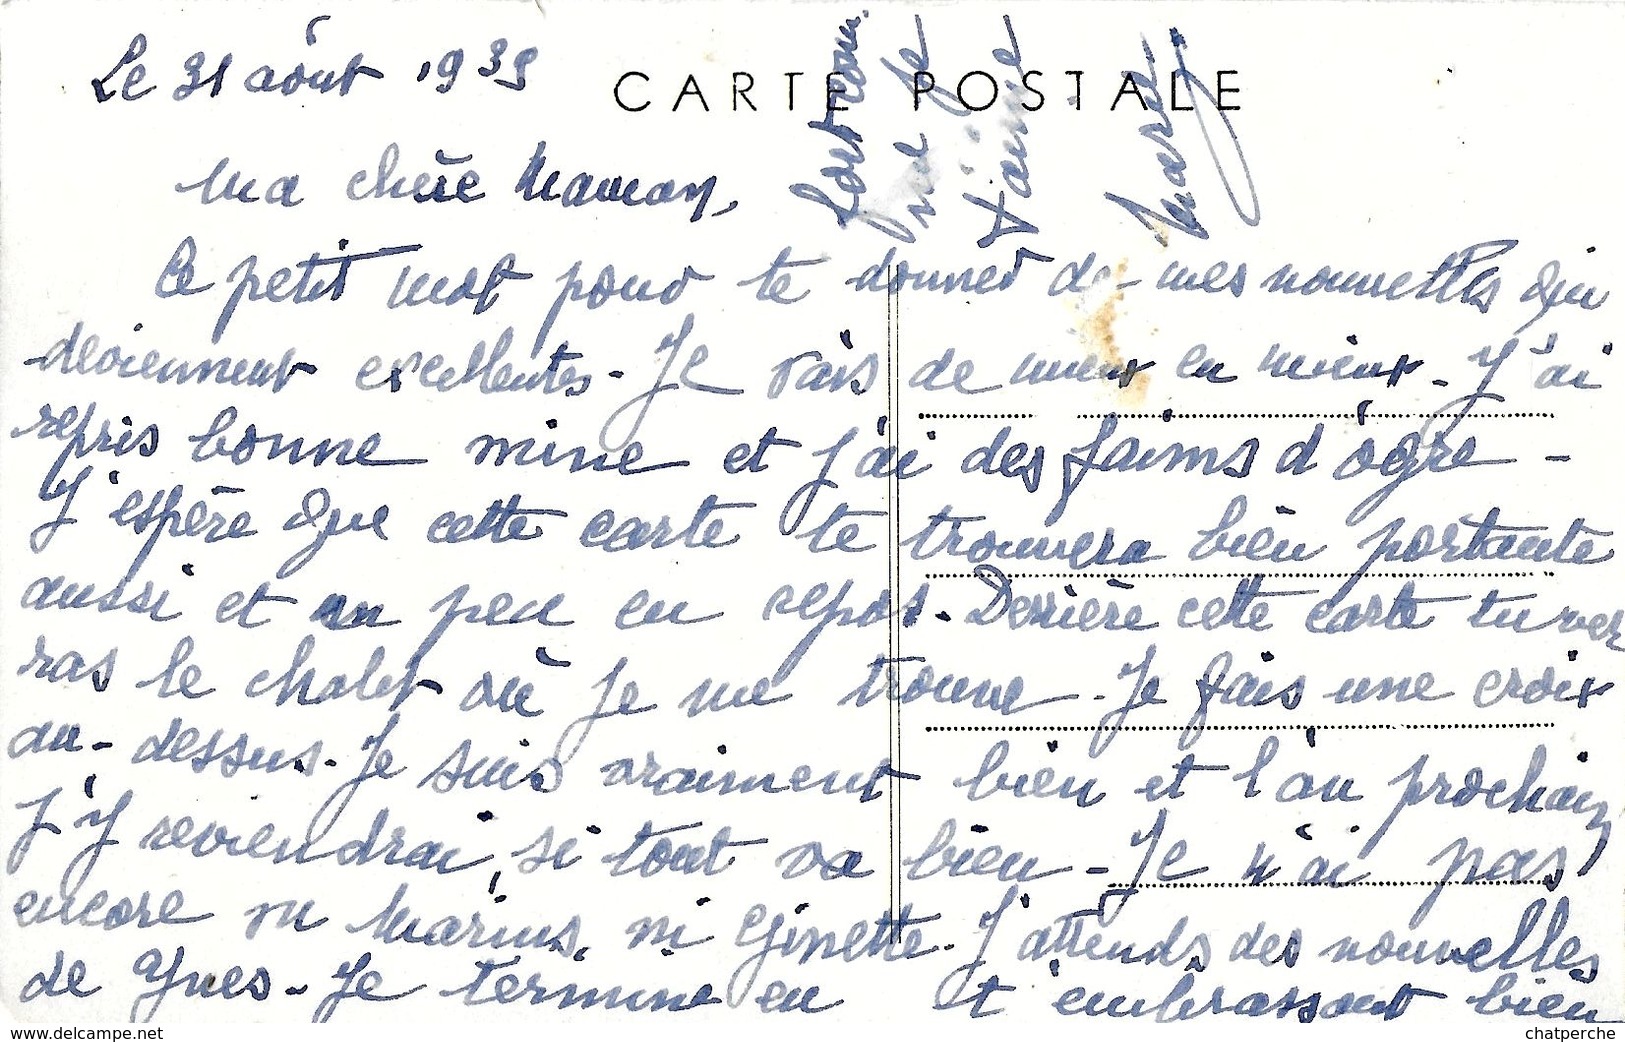 Le 31 août 1939
CARTE POSTALE
Ma chère Maman,
Ce petit mot pour te donner de mes nouvelles qui
deviennent excellentes - Je vais de mieux en mieux - J'ai
repris bonne mine et j'ai des faims d'ogre -
J'espère que cette carte te trouvera bien portante
aussi et un peu en repos. Derrière cette carte tu ver
ras le chalet où je me trouve - Je fais une croix
au-dessus. Je suis vraiment bien et l'an prochain
j'y reviendrai, si tout va bien - Je n'ai pas
encore vu Marius, ni Ginette - J'attends des nouvelles
de Yves - Je termine en t'embrassant bien
fort comme je
t'aime
Marie
www.delcampe.net
chatperche